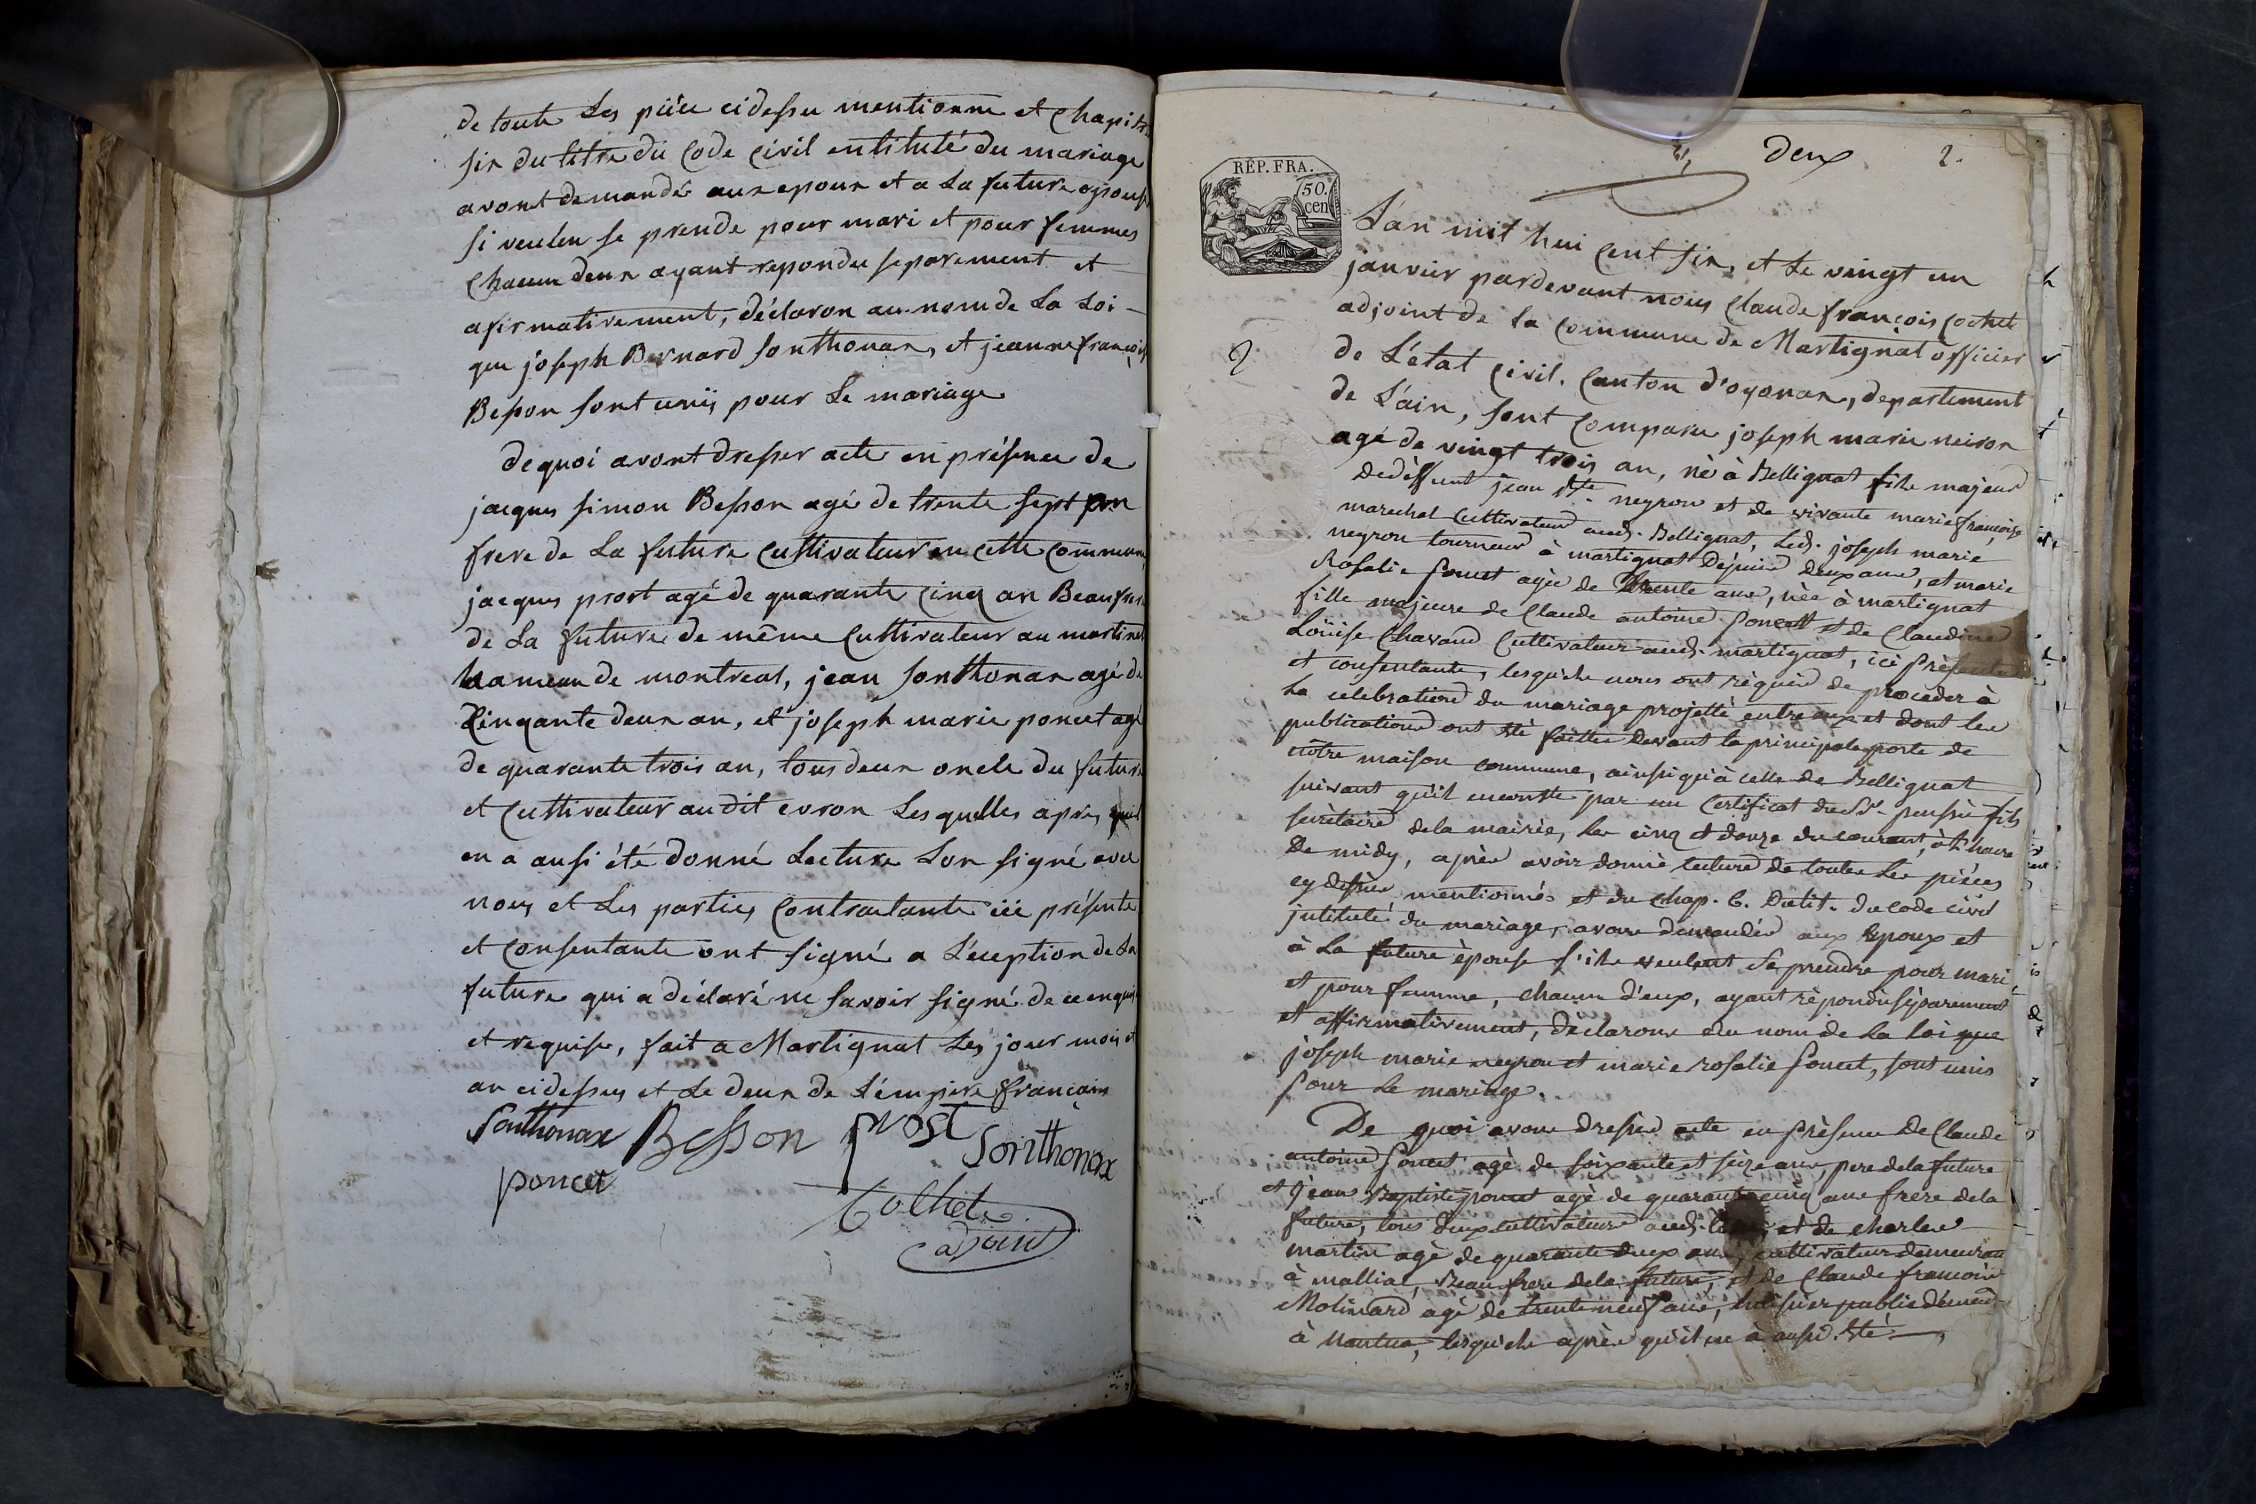 de toute Les piéce cidessu mentionnee et Chapit
six du titre du Code Civil entitulé du mariage
avont demandé aux epoux et a La future epouse
si veulen se prende pour mari et pour femmes
Chacun deux ayant repondu separement et
afirmativement, déclaron au nom de La Loi -
que joseph Bernard sonthonax, et jeanne françoise
Besson sont unis pour Le mariage
de quoi avont dresser acte en présence de
jacques simon Besson agé de trente sept
frere de La future Cultivateur en cette commune
jacques prost agé de quarante Cinq an Beaufrere
de La future de même Cultivateur au martinet
hameau de montreal, jean sonthonax agé de
Cinqante deux an, et joseph marie poncet agé
de quarante trois an, tous deux oncle du future
et Cultivateur audit evron Les quelles apres quil
en a ausi été donné Lecture Lon signé avec
nous et Les parties Contractante ici présente
et Consentante ont signé a L'éception de La
future qui a déclaré ne savoir signé de ce enquis
et requise, fait a Martignat Les jour mois et
an cidessus et Le deux de L'émpire français
Sonthonax Besson prost Sonthonax
poncet
Cochet
adjoint
deux 2.
RÉP. FRA.
50.
cen
L'an mil hui Cent six, et Le vingt un
janvier pardevant nous Claude françois Cochet
adjoint de La Commune de Martignat officier
2
de L'état Civil. Canton d'oyonax, departement
de L'ain, sont Comparu joseph marie neiron
agé de vingt trois an, né à Bellignat fils majeur
De deffunt jean Bte. neyron et de vivante marie françoise
marechal Cultivateur aud. Bellignat, Led. joseph marie
neyron tourneur à martignat Depuis deux ans, et marie
Rosalie Poncet agée de trente ans, née à martignat
fille majeure de Claude antoine Poncet et de Claudine
Loüise Chavand Cultivateurs aud. martignat, ici présente
et consentante, lesquels nous ont réquis de proceder à
La celebration du mariage projetté entre eux et dont les
publications ont été faittes devant la principale porte de
nôtre maison commune, ainsi qu'à celle de Bellignat
suivant qu'il en conste par un Certificat du Sr. fils
sécrétaire de la mairie, les cinq et douze du courant, à L'heure
De midy, après avoir donné lecture de toutes Les piéces
cy dessus mentionnés et du Chap. 6. Du tit. du Code civil
intitulé du mariage, avons demandés aux Epoux et
à La future épouse s'ils veulent se prendre pour mari
et pour femme, chacun d'eux, ayant répondu séparement
et affirmativement, déclarons au nom de La Loi que
joseph marie neyron et marie rosalie Poncet, sont unis
Pour Le mariage.
De quoi avons dressé acte en présence De Claude
antoine Poncet agé de soixante et seize ans, pere de la future
et jean Baptiste poncet agé de quarante cinq ans frere de la
future, tous deux cultivateurs aud. et de charles
martin agé de quarante deux ans, cultivateur demeurant
à malliat, Beau frere de la future, et de Claude francois
Molinard agé de trente neuf ans, huissier public demeurt
à Nantua, lesquels après qu'il en à aussi été